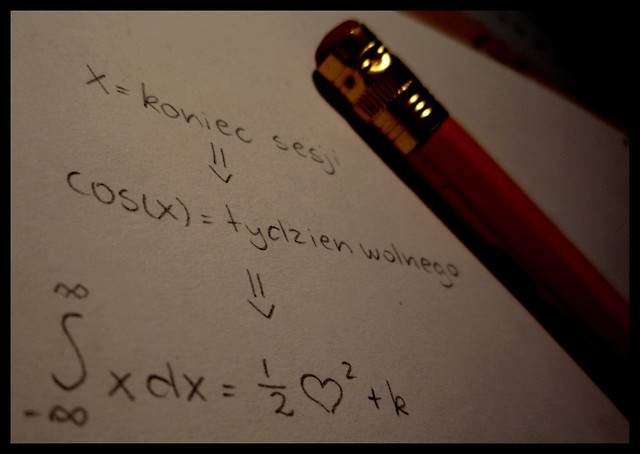 x = koniec sesji
⇓
cos(x) = tydzien wolnego
⇓
∞
∫ x dx = 1/2 ♡² + k
-∞